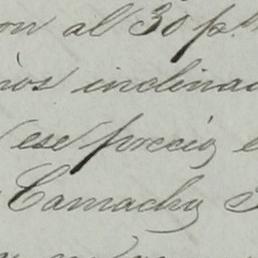 on al 30 p.%
nos inclina
ese precio e
Camacho S